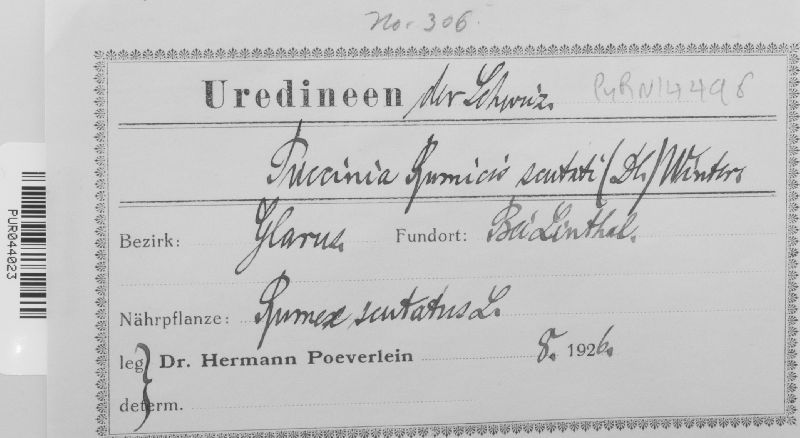 No. 306.
Uredineen der Schweiz.
PURN14496
Puccinia Rumicis scutati (DC.) Winter.
Bezirk: Glarus. Fundort: Bei Linthal.
Nährpflanze: Rumex scutatus L.
leg Dr. Hermann Poeverlein 8. 1926.
determ.
PUR044023